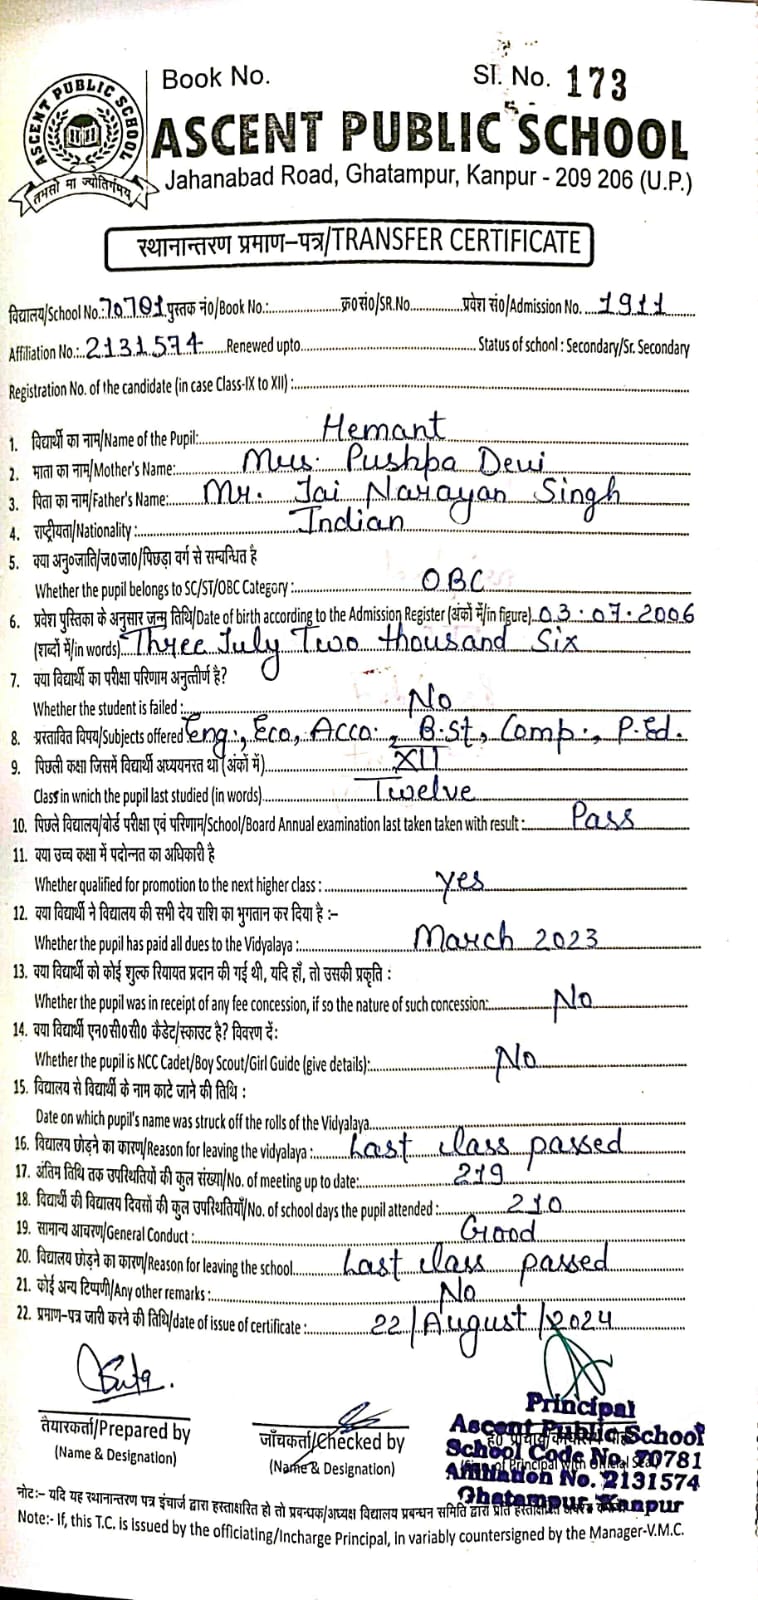 Book No. Sl. No. 173
ASCENT PUBLIC SCHOOL
तमसो मा ज्योतिर्गमय
ASCENT PUBLIC SCHOOL
Jahanabad Road, Ghatampur, Kanpur - 209 206 (U.P.)
स्थानान्तरण प्रमाण-पत्र/TRANSFER CERTIFICATE
विद्यालय/School No.: 70781 पुस्तक नं०/Book No.:........ क्र०सं०/SR.No........ प्रवेश सं०/Admission No. 1911
Affiliation No.: 2131574 Renewed upto........ Status of school : Secondary/Sr. Secondary
Registration No. of the candidate (in case Class-IX to XII) :........
1. विद्यार्थी का नाम/Name of the Pupil: Hemant
2. माता का नाम/Mother's Name: Mrs. Pushpa Devi
3. पिता का नाम/Father's Name: Mr. Jai Narayan Singh
4. राष्ट्रीयता/Nationality : Indian
5. क्या अनु०जाति/ज०जा०/पिछड़ा वर्ग से सम्बन्धित है
Whether the pupil belongs to SC/ST/OBC Category : OBC
6. प्रवेश पुस्तिका के अनुसार जन्म तिथि/Date of birth according to the Admission Register (अंकों में/in figure) 03.07.2006
(शब्दों में/in words) Three July Two thousand Six
7. क्या विद्यार्थी का परीक्षा परिणाम अनुत्तीर्ण है?
Whether the student is failed : No
8. प्रस्तावित विषय/Subjects offered Eng., Eco, Acco., B.St, Comp., P.Ed.
9. पिछली कक्षा जिसमें विद्यार्थी अध्ययनरत था (अंकों में) XII
Class in wnich the pupil last studied (in words) Twelve
10. पिछले विद्यालय/बोर्ड परीक्षा एवं परिणाम/School/Board Annual examination last taken taken with result : Pass
11. क्या उच्च कक्षा में पदोन्नत का अधिकारी है
Whether qualified for promotion to the next higher class : yes
12. क्या विद्यार्थी ने विद्यालय की सभी देय राशि का भुगतान कर दिया है :-
Whether the pupil has paid all dues to the Vidyalaya : March 2023
13. क्या विद्यार्थी को कोई शुल्क रियायत प्रदान की गई थी, यदि हाँ, तो उसकी प्रकृति :
Whether the pupil was in receipt of any fee concession, if so the nature of such concession: No
14. क्या विद्यार्थी एन०सी०सी० कैडेट/स्काउट है? विवरण दें:
Whether the pupil is NCC Cadet/Boy Scout/Girl Guide (give details): No
15. विद्यालय से विद्यार्थी के नाम काटे जाने की तिथि :
Date on which pupil's name was struck off the rolls of the Vidyalaya........
16. विद्यालय छोड़ने का कारण/Reason for leaving the vidyalaya : Last class passed
17. अंतिम तिथि तक उपस्थितियों की कुल संख्या/No. of meeting up to date: 219
18. विद्यार्थी की विद्यालय दिवसों की कुल उपस्थितियाँ/No. of school days the pupil attended : 210
19. सामान्य आचरण/General Conduct : Good
20. विद्यालय छोड़ने का कारण/Reason for leaving the school Last class passed
21. कोई अन्य टिप्पणी/Any other remarks : No
22. प्रमाण-पत्र जारी करने की तिथि/date of issue of certificate : 22/August/2024
तैयारकर्ता/Prepared by
(Name & Designation)
जाँचकर्ता/Checked by
(Name & Designation)
Principal
Ascent Public School
School Code No. 70781
Affiliation No. 2131574
Ghatampur, Kanpur
नोट:- यदि यह स्थानान्तरण पत्र इंचार्ज द्वारा हस्ताक्षरित हो तो प्रबन्धक/अध्यक्ष विद्यालय प्रबन्धन समिति द्वारा प्रति हस्ताक्षरित
Note:- If, this T.C. is Issued by the officiating/Incharge Principal, In variably countersigned by the Manager-V.M.C.